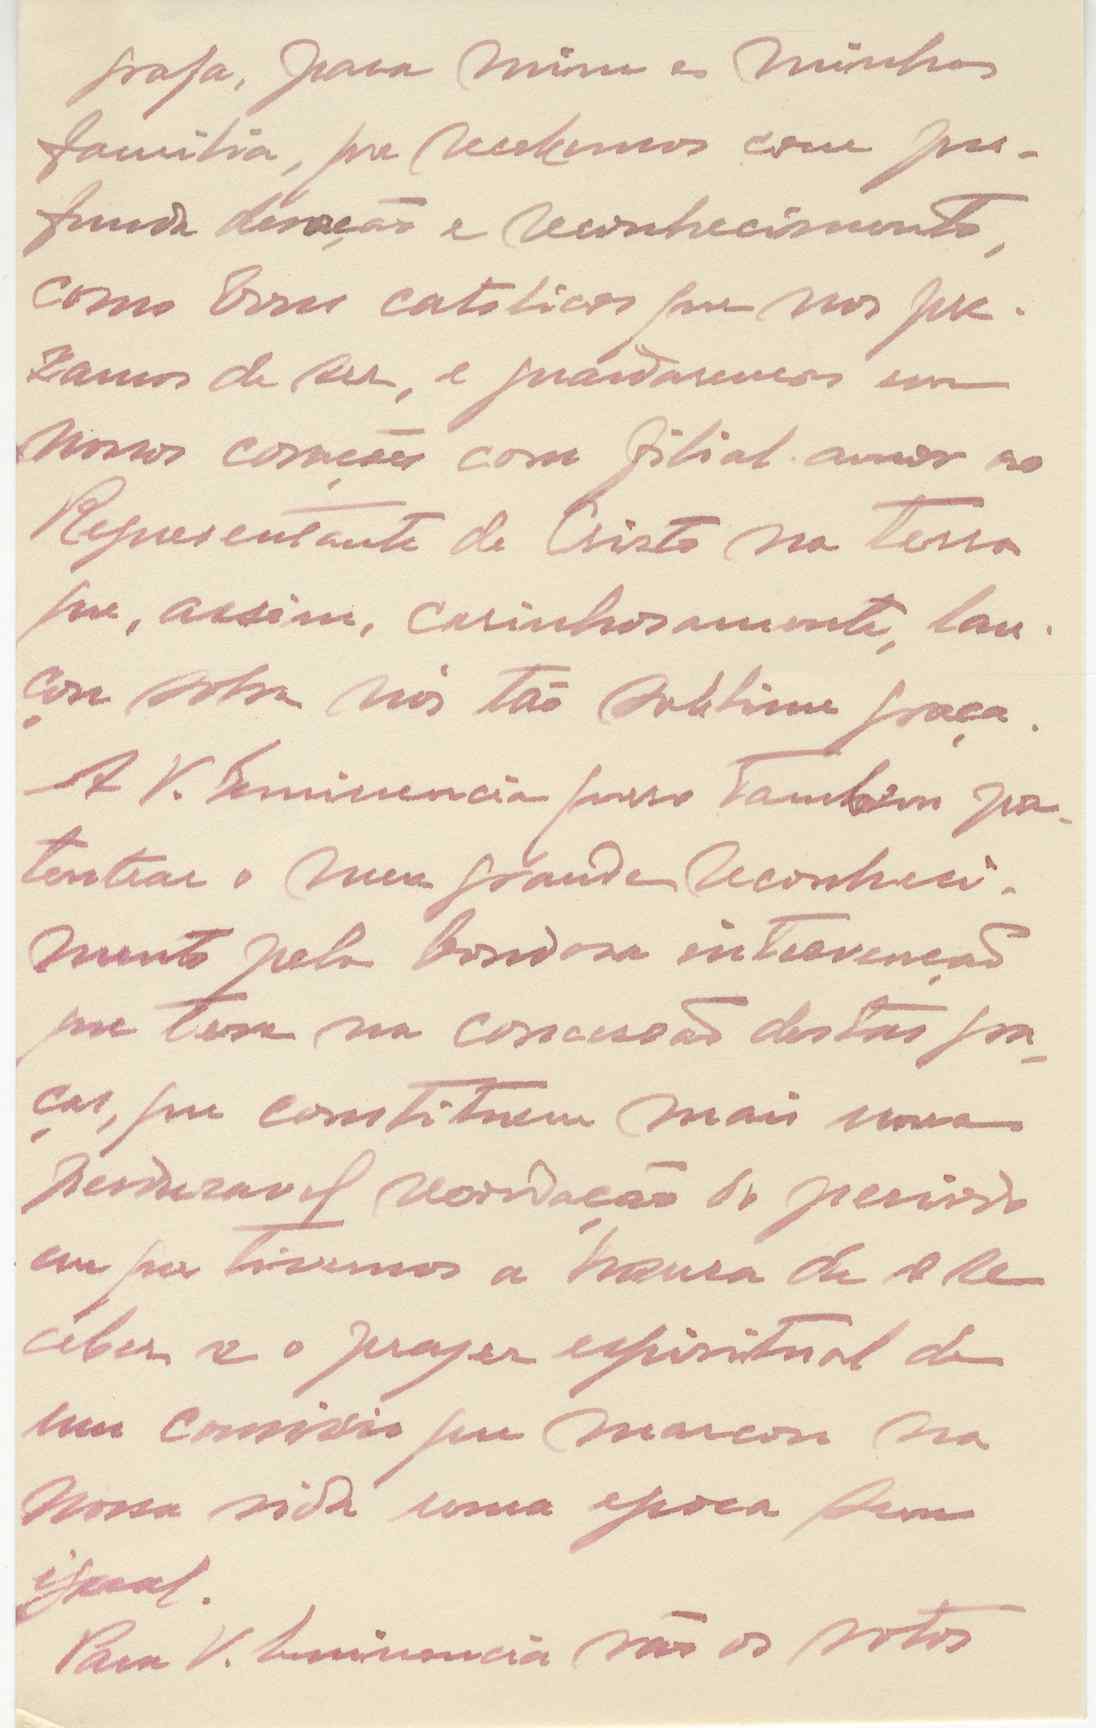 grafa, para mim e minha
familia, que recebemos com pro-
funda devoção e reconhecimento,
como bons catolicos que nos pre-
zamos de ser, e guardaremos em
nossos corações com filial amor ao
Representante de Cristo na terra
que, assim, carinhosamente, lan-
çou sobre nós tão sublime graça.
A V. Eminencia quero tambem pa-
tentear o meu grande reconheci-
mento pela bondosa intervenção
que teve na concessão destas gra-
ças, que constituem mais uma
perduravel recordação do periodo
em que tivemos a honra de o re
ceber e o prazer espiritual de
um convivio que marcou na
nossa vida uma epoca sem
igual.
Para V. Eminencia vão os votos